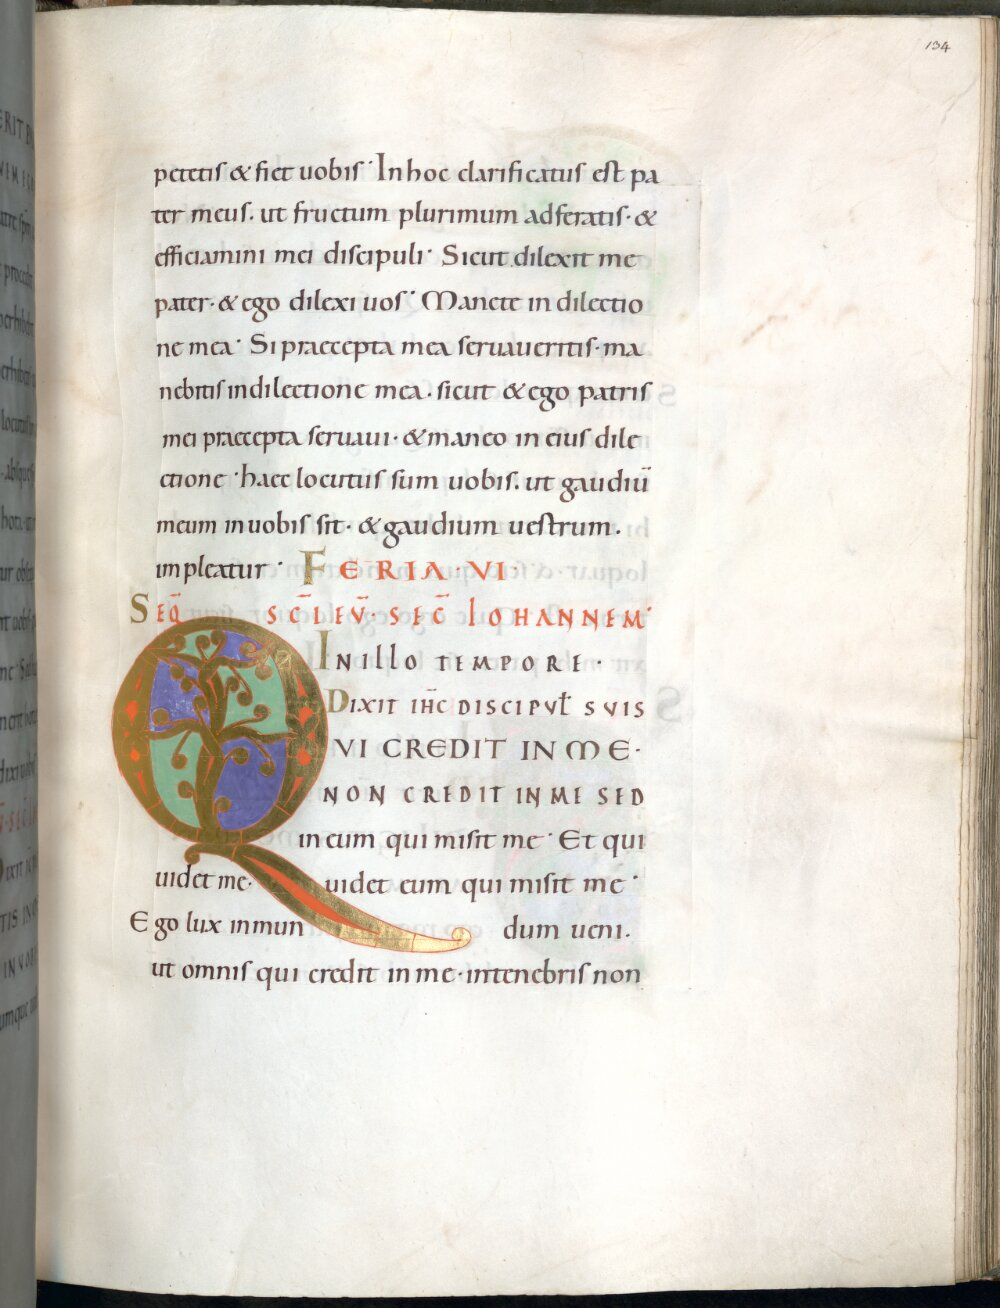 134
petetis & fiet uobis· In hoc clarificatus est pa
ter meus. ut fructum plurimum adferatis· &
efficiamini mei discipuli· Sicut dilexit me
pater· & ego dilexi uos· Manete in dilectio
ne mea· Si praecepta mea seruaueritis· ma
nebitis in dilectione mea· sicut & ego patris
mei praecepta seruaui· & maneo in eius dile
ctione· haec locutus sum uobis. ut gaudiū
meum in uobis sit· & gaudium uestrum·
impleatur· FERIA·VI·
SEQ̄ SC̄I EV̄· SEC̄ IOHANNEM·
IN ILLO TEMPORE·
DIXIT IH̄C DISCIPVŁ SVIS
QVI CREDIT IN ME·
NON CREDIT IN ME SED
in eum qui misit me· Et qui
uidet me· uidet eum qui misit me·
Ego lux in mun dum ueni·
ut omnis qui credit in me· in tenebris non